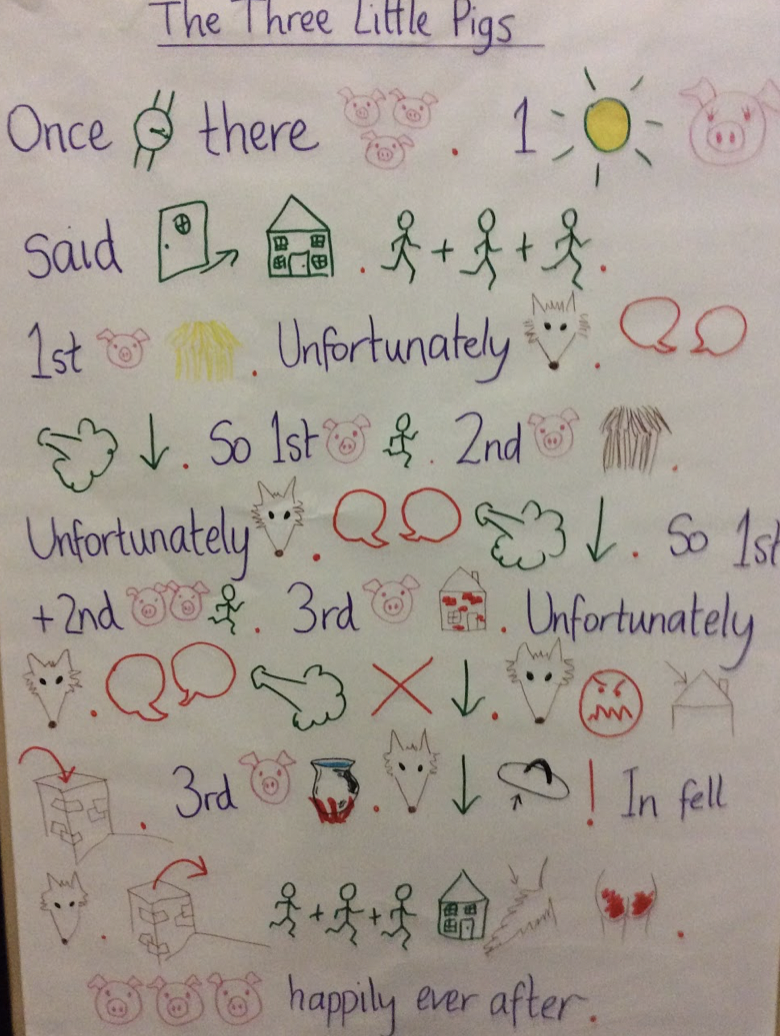 The Three Little Pigs
Once there . 1
said . + + .
1st . Unfortunately .
. So 1st . 2nd .
Unfortunately . . So 1st
+2nd . 3rd . Unfortunately
. .
. 3rd . ! In fell
. + + .
happily ever after.